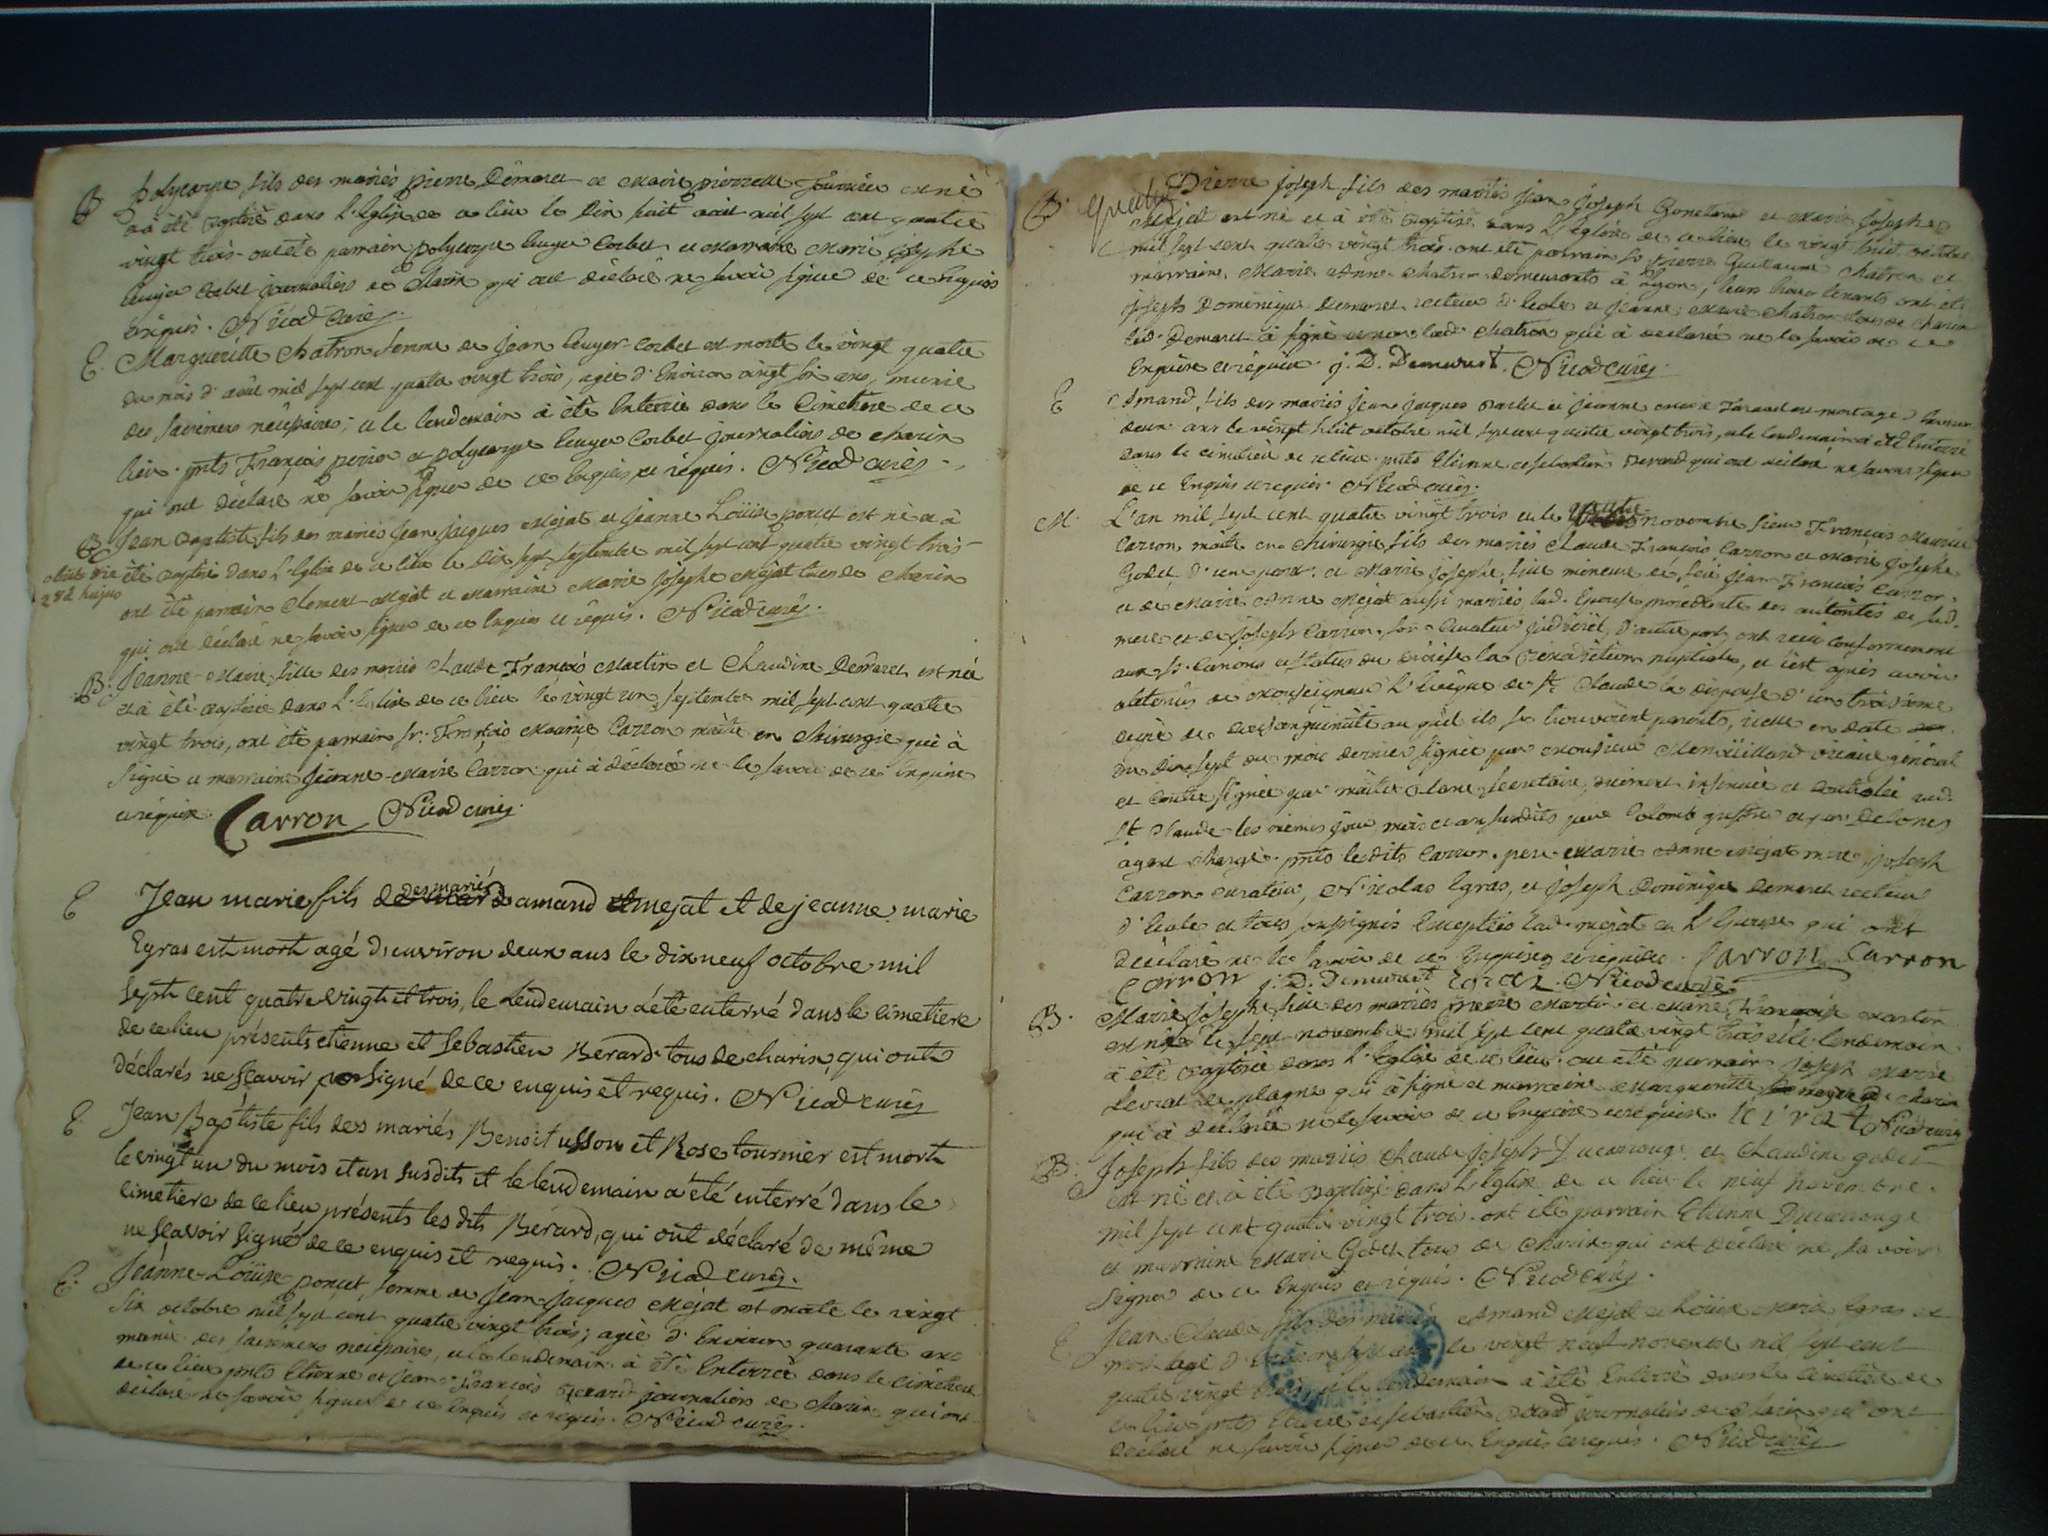 B. Polycarpe fils des mariés pierre Démaret et Marie pierrette Fournier est né
et à été baptisé dans l'Eglise de ce lieu le dix huit août mil sept cent quatre
vingt trois. ont été parrain polycarpe Cuyer Corbet et Marraine Marie josephe
Cuyer Corbet journaliers de Charix qui ont déclaré ne savoir signer de ce Enquis
Requis. Nicod curés.
E. Margueritte Chatron femme de Jean Cuyer Corbet est morte le vingt quatre
du mois d'août mil sept cent quatre vingt trois, agée d'Environ vingt six ans, munie
des sacremens nécéssaires; et le lendemain à été Enterrée dans le Cimetiere de ce
lieu. pnts François perier et polycarpe Cuyer Corbet journaliers de charix
qui ont déclaré ne savoir signer de ce Enquis et réquis. Nicod curés.
B. Jean Baptiste fils des mariés Jean Jacques Méjat et Jeanne Loüise poncet est né et à
été Baptisé dans l'Eglise de ce lieu le dix sept septembre mil sept cent quatre vingt trois
28e hujus
ont été parrain Clement Mejat et Marraine Marie Josephe Mejat tous de Charix
qui ont déclaré ne savoir signer de ce Enquis et réquis. Nicod curés.
B. Jeanne-Marie fille des mariés Claude François Martin et Claudine Démaret est née
et à été baptisée dans l'Eglise de ce lieu le vingt un septembre mil sept cent quatre
vingt trois, ont été parrain Sr. François Maurice Carron maître en Chirurgie qui à
signé et marraine Jeanne-Marie Carron qui à déclaré ne le savoir de ce Enquise
et réquise. Carron Nicod curés.
E Jean marie fils des mariés amand mejat et de jeanne marie
Egras est mort agé d'environ deux ans le dix neuf octobre mil
sept cent quatre vingt et trois, le lendemain a été enterré dans le cimetiere
de ce lieu présents etienne et Sebastien Berard tous de charix, qui ont
déclarés ne sçavoir signé de ce enquis et requis. Nicod curés
E. Jean Baptiste fils des mariés Benoit usson et Rose tournier est mort
le vingt un du mois et an susdits et le lendemain a été enterré dans le
cimetiere de ce lieu présents les dits Bérard, qui ont déclaré de même
ne sçavoir signé de ce enquis et requis. Nicod curés.
E. Jeanne-Loüise poncet, femme de Jean-Jacques Mejat est morte le vingt
six octobre mil sept cent quatre vingt trois; agée d'Environ quarante ans
munie des sacremens nécéssaires, et le lendemain à été Enterrée dans le cimetiere
de ce lieu pnts Etienne et Jean-François Berard journaliers de Charix qui ont
déclaré ne savoir signer de ce Enquis et réquis. Nicod curés.
B. Pierre Joseph fils des mariés Jean Joseph et Marie Josephe
Mejat est né et à été Baptisé dans l'Eglise de ce lieu le vingt huit octobre
mil sept cent quatre vingt trois. ont été parrain Sr pierre Guillaume Chatron et
marraine Marie Anne Chatron demeurants à Lyon, leurs lieux tenants ont été
Joseph Dominique Demaret recteur d'Ecole et Jeanne Marie Chatron tous de Charix
led. Demaret à signé et non lad. Chatron qui à declaré ne le savoir de ce
Enquise et réquise. j. D. Demaret. Nicod curés.
E Amand fils des mariés Jean Jacques et Jeanne est mort agé d'environ
deux ans le vingt huit octobre mil sept cent quatre vingt trois, et le lendemain à été Enterré
dans le cimetière de ce lieu. pnts Etienne et sebastien Berard qui ont déclaré ne savoir signer
de ce Enquis et requis. Nicod curés.
M. L'an mil sept cent quatre vingt trois et le quatre novembre Sieur François Maurice
Carron, maître en Chirurgie, fils des mariés Claude François Carron et Marie Josephe
Godet d'une part. et Marie Josephe fille mineure de feu Jean François Carron
et de Marie Anne Mejat aussi mariés, lad. Epouse procédante des autorités de sad.
mere et de Joseph Carron, son Curateur judiciel, d'autre part, ont reçu conformement
aux St. Canons et statuts du diocèse la Benediction nuptiale, et c'est après avoir
obtenus de Monseigneur l'Evêque de St. Claude la dispense d'un troisième
dégré de consanguinité au quel ils se trouvoient parents, icelle en date
du dix sept du mois dernier signée par Monsieur vicaire général
et contre signée par maître secretaire, duement insinuée et controlée aud.
St. Claude les mêmes jour mois et an susdits par Colomb greffier et par
ayant charge. pnts lesdits Carron pere Marie Anne Mejat mere, joseph
Carron curateur, Nicolas Egras, et Joseph Dominique Demaret recteur
d'Ecole et tous soussignés Exceptées lad. Mejat et l'Epouse qui ont
déclaré ne le savoir de ce Enquises et réquises. Carron Carron
Carron j. D. Demaret Egraz Nicod curés
B. Marie Josephe fille des mariés pierre Martin et Marie Françoise Martin
est née le sept novembre mil sept cent quatre vingt trois et le lendemain
à été baptisée dans l'Eglise de ce lieu. ont été parrain Joseph Marie
Levrat de plagne qui à signé et marraine Marguerite de Charix
qui à déclaré ne le savoir de ce Enquise et réquise. levrat Nicod curés
B. Joseph fils des mariés Claude Joseph Ducarouge et Claudine godet
est né et à été Baptisé dans l'Eglise de ce lieu le neuf novembre
mil sept cent quatre vingt trois. ont été parrain Etienne Ducarouge
et marraine Marie Godet tous de Charix qui ont déclaré ne savoir
Signer de ce Enquis et réquis. Nicod curés.
E Jean Claude fils des mariés Amand Mejat et Loüise Marie Egras est
mort agé d'Environ sept ans le vingt neuf novembre mil sept cent
quatre vingt trois, et le lendemain à été Enterré dans le cimetière de
ce lieu pnts Etienne et sebastien Berard journaliers de Charix qui ont
déclaré ne savoir signer de ce Enquis et requis. Nicod curés